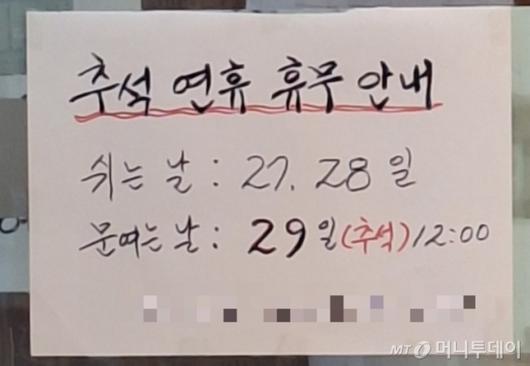 추석 연휴 휴무 안내
쉬는 날 : 27. 28일
문여는 날 : 29일(추석)12:00
MT 머니투데이